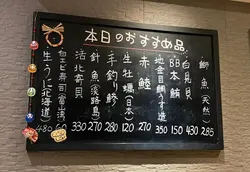 本日のおすすめ品
鰤魚(天然) 285
430
BB本鮪 150
地金目鯛うす造 350
赤 270
生牡蠣(日本) 120
手釣り鯵 280
針魚(淡路島) 270
活北寄貝 330
白エビ寿司(富山湾)
生うに(北海道) 480